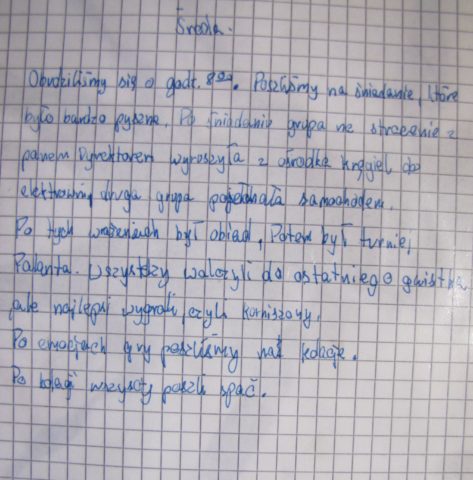 Środa.
Obudziliśmy się o godz. 8⁰⁰. Poszliśmy na śniadanie, które
było bardzo pyszne. Po śniadaniu grupa na
panem Dyrektorem wyruszyła z ośrodka Kręgiel do
elektrowni, druga grupa pojechała samochodem.
Po tych wrażeniach był obiad, Potem był turniej
Palanta. Wszyscy walczyli do ostatniego gwizdka
ale najlepsi wygrali czyli Korniszony.
Po emocjach gry poszliśmy na kolacje.
Po kolacji wszyscy poszli spać.